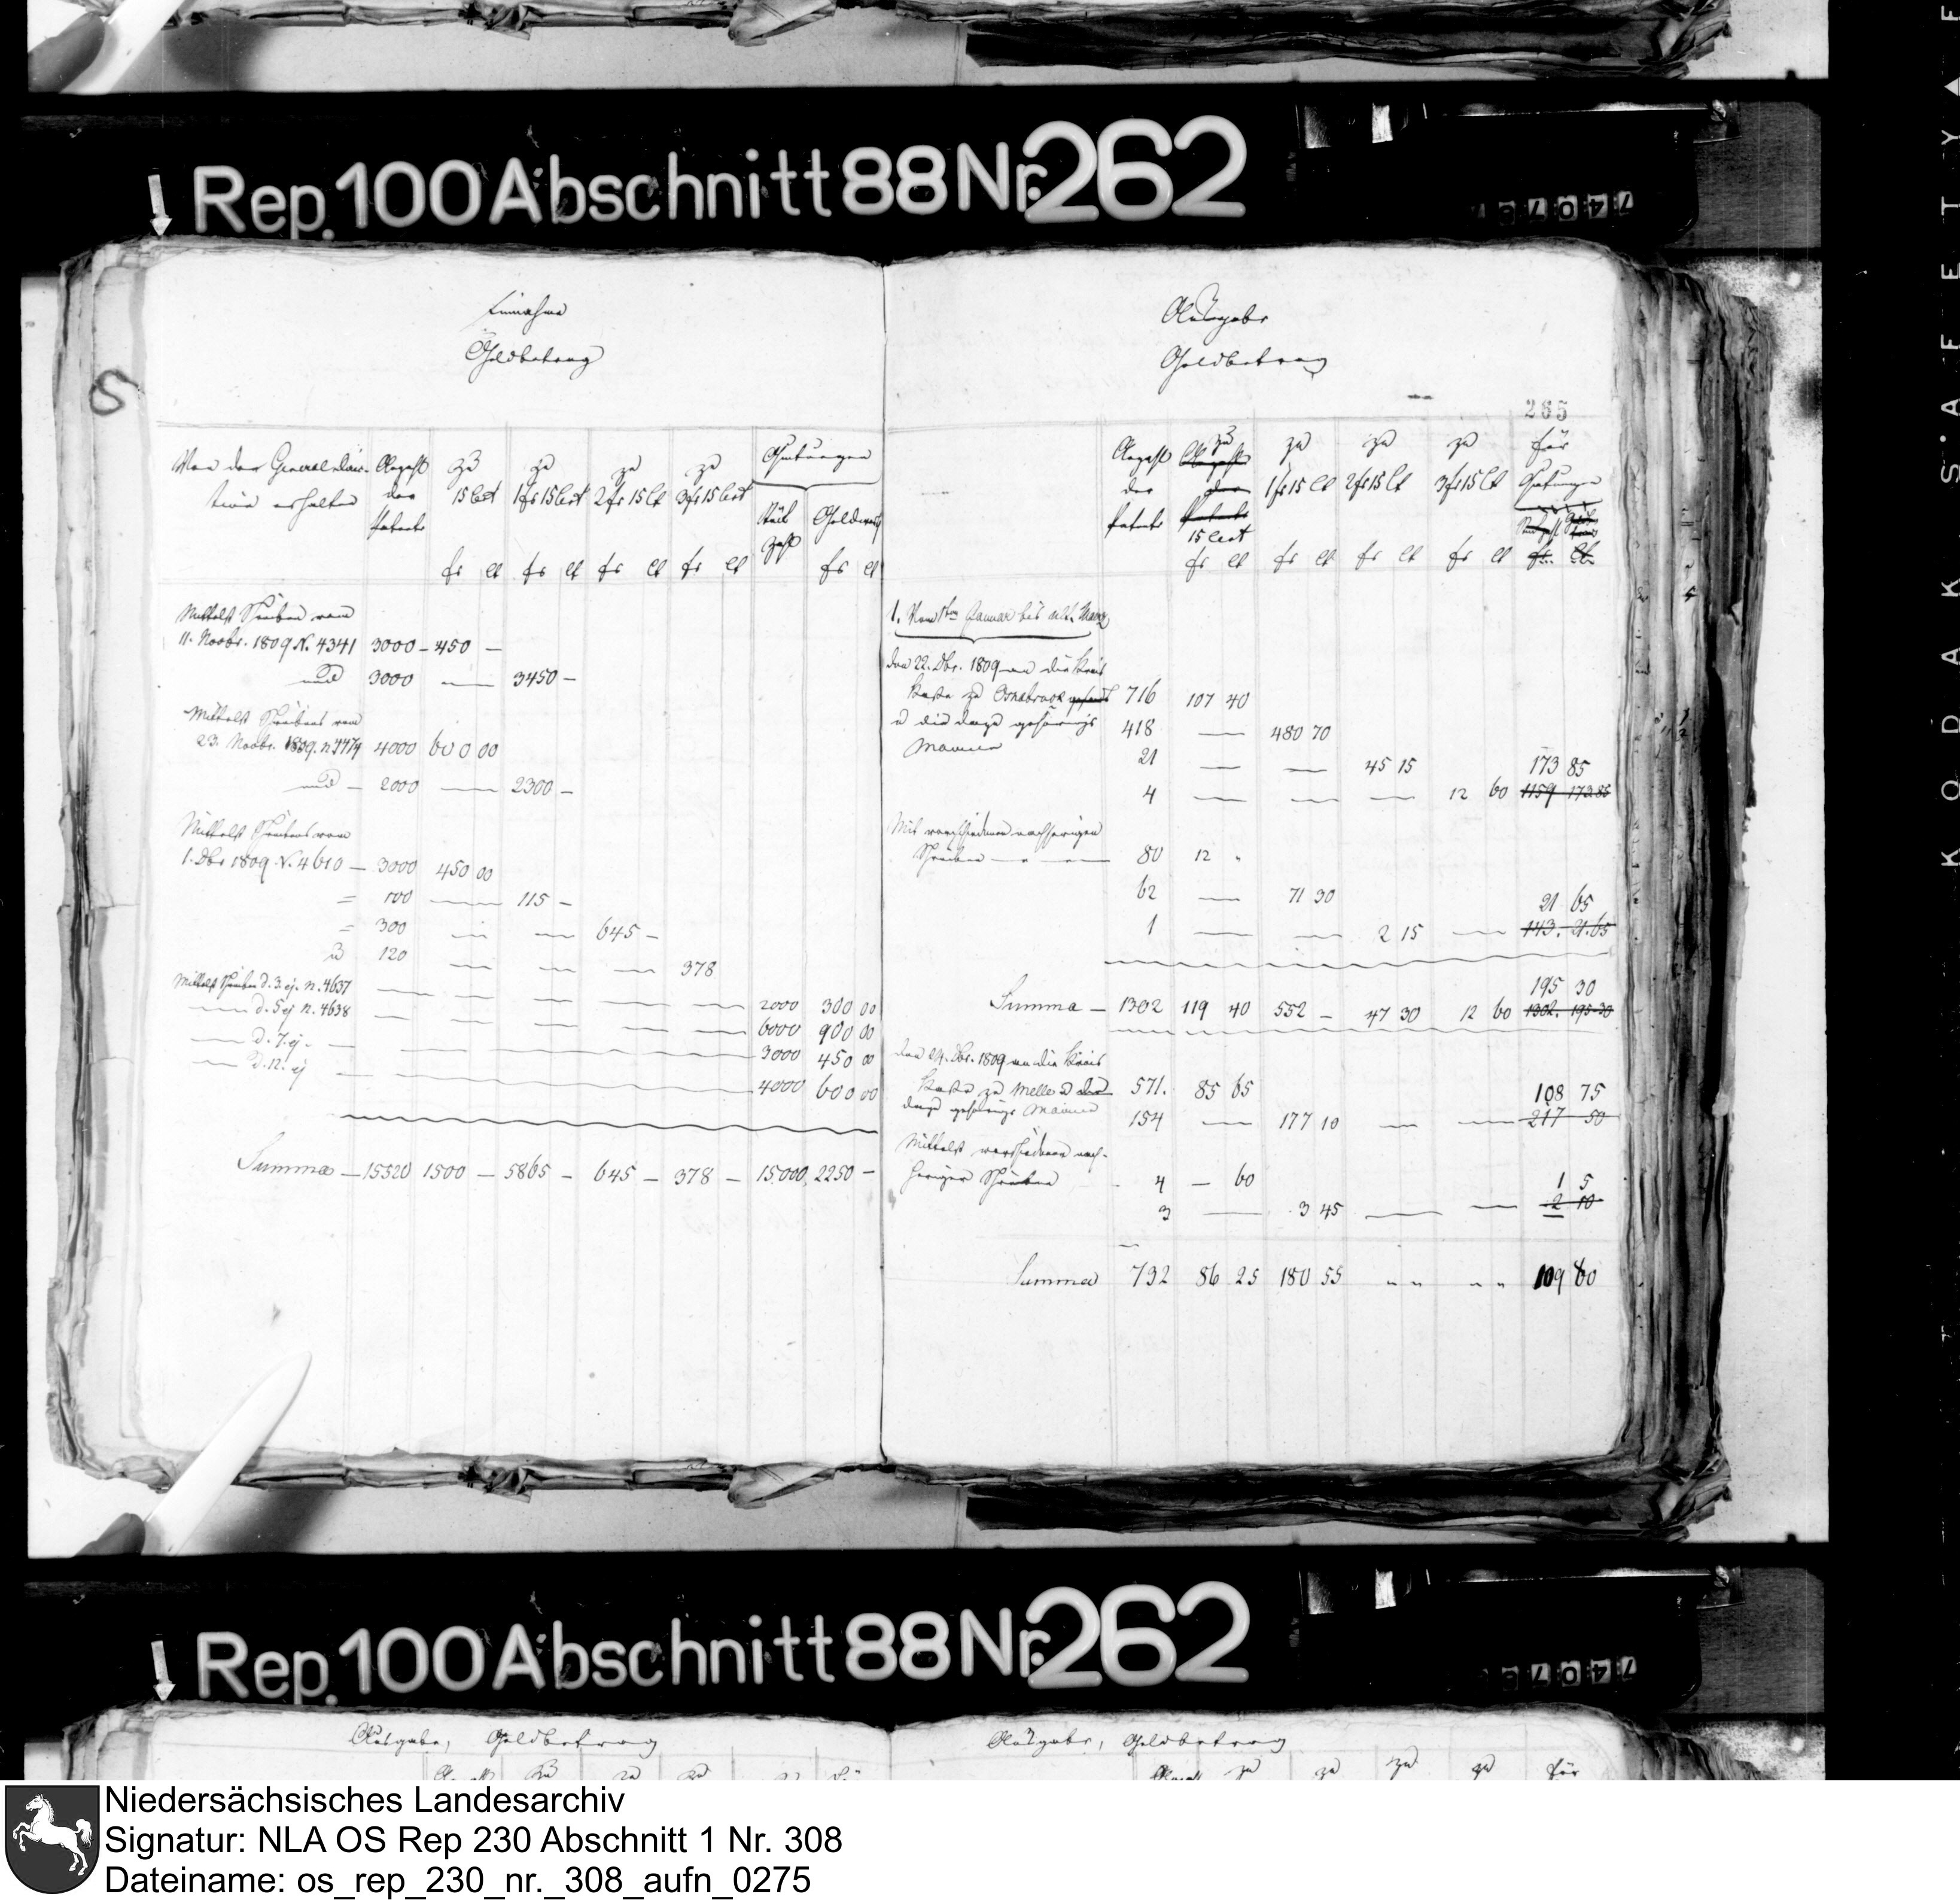 Rep. 100 Abschnitt 88 Nr. 262
Einnahme
Geldbetrag
Von der General direc-
tion erhalten
Anzahl
der
Patente
zu
15 Cent
zu
1 fr 15 Cent
zu
2 fr 15 Ct
zu
3 fr 15 Cent
Quitungen
Stück
zahl
Geldwerth
fr Ct fr Ct fr Ct fr Ct fr Ct
Mittelst Schreiben vom
11. Novbr. 1809 N. 4341 3000 – 450 –
und 3000 — 3450 –
Mittelst Schreibens vom
23. Novbr. 1809. n. 4474 4000 600 00
und – 2000 — 2300 –
Mittelst Schreibens vom
1. Dbr 1809. N. 4610 – 3000 450 00
= 100 — 115 –
= 300 — — 645 –
u 120 — — — 378
Mittelst Schreiben d. 3. ej. n. 4637 — — — — — 2000 300 00
— d. 5 ej n. 4638 — — — — — 6000 900 00
— d. 7. ej. — 3000 450 00
— d. 12. ej — 4000 600 00
Summa – 15520 1500 – 5865 – 645 – 378 – 15000 2250 –
Ausgabe
Geldbetrag
265
Anzahl
der
Patente
zu
Anzahl
der
Patente
15 Cent
zu
1 fr 15 Ct
zu
2 fr 15 Ct
zu
3 fr 15 Ct
für
Quitungen
fr Ct fr Ct fr Ct fr Ct fr. Ct.
1. Vom 1ten Januar bis ult. Marz
den 22. Dbr. 1809 an die Kreis
Kasse zu Osnabrück gesandt 716 107 40
u die dazu gehörige 418 — 480 70
Mairien
21 — — 45 15 173 85
4 — — — 12 60 1159 173.85
Mit verschiedenen nachherigen
Schreiben — 80 12 "
62 — 71 30 21 65
1 — — 2 15 — 143. 21.65
195 30
Summa – 1302 119 40 552 – 47 30 12 60 1302. 195.30
den 24. Dbr. 1809 an die Kreis
Kasse zu Melle u der 571. 85 65 108 75
dazu gehörige Mairien 154 — 177 10 — — 217 50
Mittelst verschiedenen nach-
heriger Schreiben 4 – 60 1 5
3 — 3 45 — — 2 10
Summa 732 86 25 180 55 " " " " 109 60
Rep. 100 Abschnitt 88 Nr. 262
Ausgabe, Geldbetrag
Ausgabe, Geldbetrag
zu zu zu zu für
Anzahl zu zu zu zu für
KODAK SAFETY
Niedersächsisches Landesarchiv
Signatur: NLA OS Rep 230 Abschnitt 1 Nr. 308
Dateiname: os_rep_230_nr._308_aufn_0275